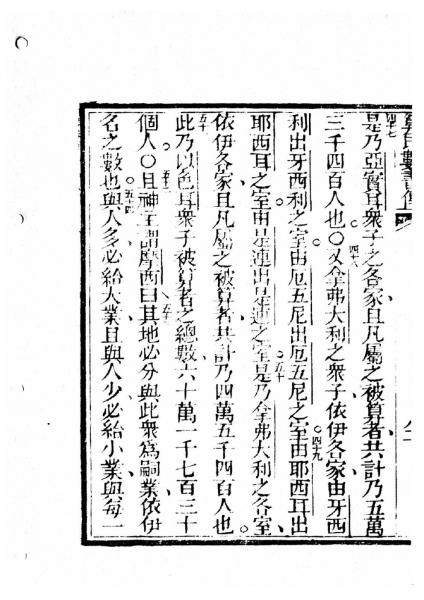 是乃亞實耳衆子之各家且凡屬之被算者共計乃五萬
四十七
三千四百人也○又拿弗大利之衆子依伊各家由牙西
四十八
利出牙西利之室由厄五尼出厄五尼之室由耶西耳出
四十九
耶西耳之室由是連出是連之室是乃拿弗大利之各室
五十
依伊各家且凡屬之被算者共計乃四萬五千四百人也
此乃以色耳衆子被算者之總數六十萬一千七百三十
五十
個人○且神主謂摩西曰其地必分與此衆爲嗣業依伊
名之數也與人多必給大業且與人少必給小業與每一
五十四